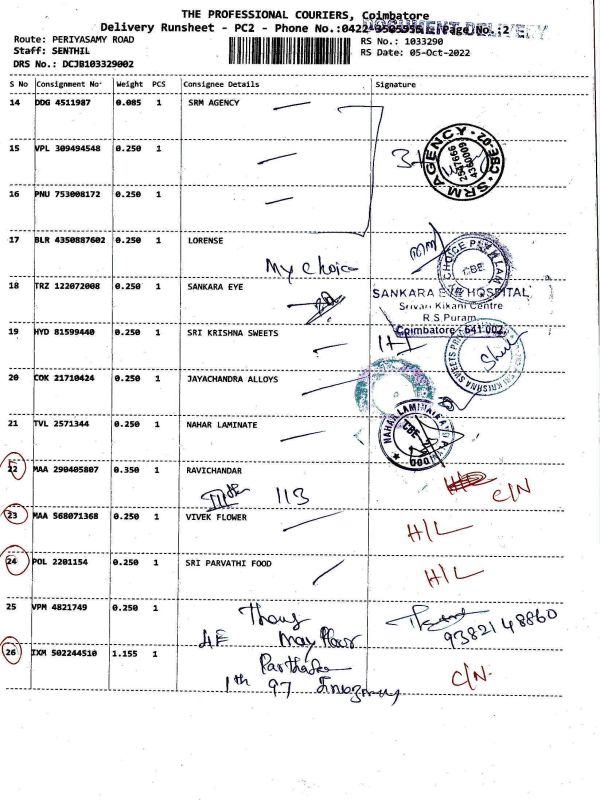 THE PROFESSIONAL COURIERS, Coimbatore
DOCUMENT DELIVERY
Delivery Runsheet - PC2 - Phone No.:0422-3505955 & Page No.:2
Route: PERIYASAMY ROAD
RS No.: 1033290
Staff: SENTHIL
RS Date: 05-Oct-2022
DRS No.: DCJB103329002
S No Consignment No Weight PCS Consignee Details Signature
14 DDG 4511987 0.085 1 SRM AGENCY
15 VPL 309494548 0.250 1
3+
SRM AGENCY CBE-02
2547666
4360009
16 PNU 753008172 0.250 1
17 BLR 4350887602 0.250 1 LORENSE
My choice
MY CHOICE
CBE
18 TRZ 122072008 0.250 1 SANKARA EYE
SANKARA EYE HOSPITAL
Srivari Kikani Centre
R.S.Puram,
Coimbatore - 641 002.
19 HYD 81599440 0.250 1 SRI KRISHNA SWEETS
1+1
KRISHNA SWEETS
20 COK 21710424 0.250 1 JAYACHANDRA ALLOYS
21 TVL 2571344 0.250 1 NAHAR LAMINATE
NAHAR LAMINATE
CBE
22 MAA 290405807 0.350 1 RAVICHANDAR
113
C/N
23 MAA 568071368 0.250 1 VIVEK FLOWER
H/L
24 POL 2201154 0.250 1 SRI PARVATHI FOOD
H/L
25 VPM 4821749 0.250 1
4E May Flour
9382148860
26 IXM 502244510 1.155 1
1th 97
C/N